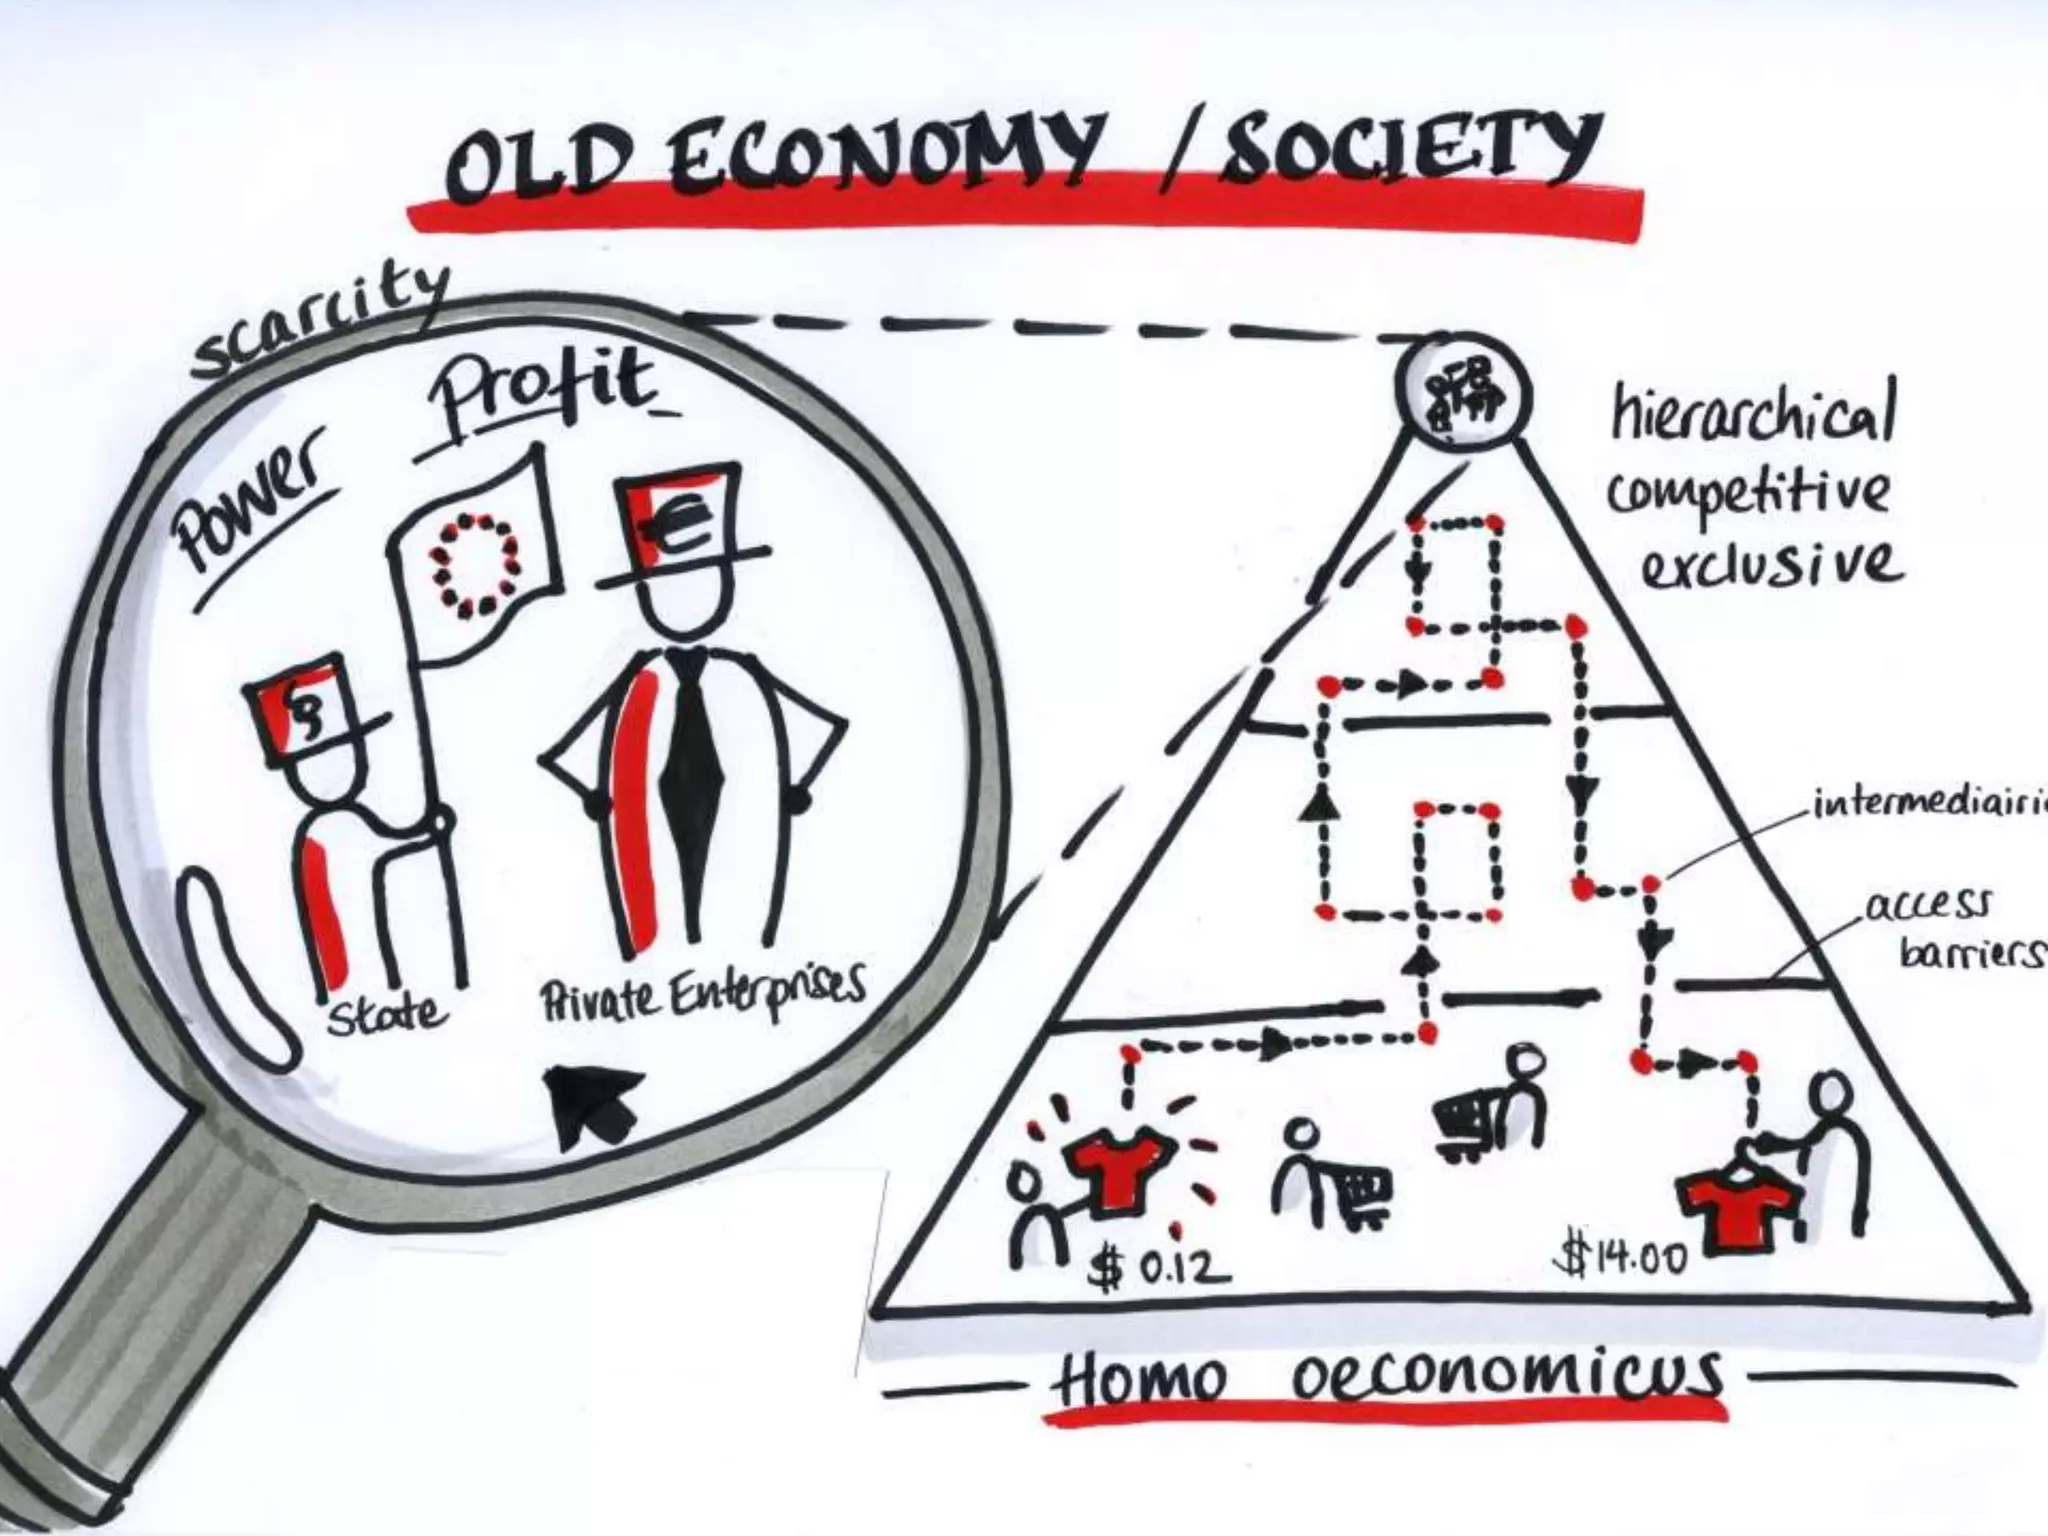 OLD ECONOMY / SOCIETY
scarcity
Profit
Power
€
§
State
Private Enterprises
hierarchical
competitive
exclusive
intermediairi
access
barriers
$ 0.12
$14.00
Homo oeconomicus